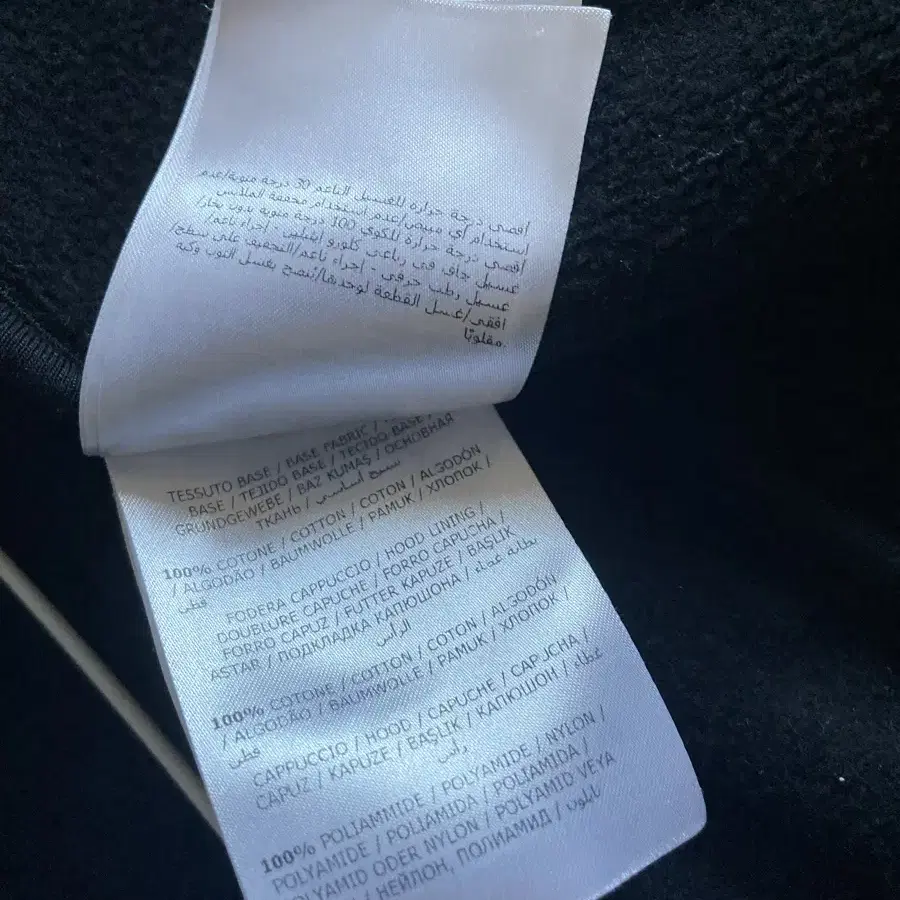 أقصى درجة حرارة للغسيل الناعم 30 درجة مئوية/عدم
استخدام أي مبيض/عدم استخدام مجففة الملابس
أقصى درجة حرارة للكوي 100 درجة مئوية بدون بخار/
غسيل جاف في رباعي كلورو إيثيلين - إجراء ناعم/
غسيل رطب حرفي - إجراء ناعم/التجفيف على سطح
افقي/غسل القطعة لوحدها/يُنصح بغسل الثوب وكيه
مقلوبًا.
TESSUTO BASE / BASE FABRIC /
BASE / TEJIDO BASE / TECIDO BASE /
GRUNDGEWEBE / BAZ KUMAŞ / ОСНОВНАЯ
ТКАНЬ / نسيج أساسي
100% COTONE / COTTON / COTON / ALGODÓN
/ ALGODÃO / BAUMWOLLE / PAMUK / ХЛОПОК /
قطن
FODERA CAPPUCCIO / HOOD LINING /
DOUBLURE CAPUCHE / FORRO CAPUCHA /
FORRO CAPUZ / FUTTER KAPUZE / BAŞLIK
ASTAR / ПОДКЛАДКА КАПЮШОНА / بطانة غطاء
الرأس
100% COTONE / COTTON / COTON / ALGODÓN
/ ALGODÃO / BAUMWOLLE / PAMUK / ХЛОПОК /
قطن
CAPPUCCIO / HOOD / CAPUCHE / CAPUCHA /
CAPUZ / KAPUZE / BAŞLIK / КАПЮШОН / غطاء
رأس
100% POLIAMMIDE / POLYAMIDE / NYLON /
POLYAMIDE / POLIAMIDA / POLIAMIDA /
POLYAMID ODER NYLON / POLYAMID VEYA
/ НЕЙЛОН, ПОЛИАМИД / نايلون